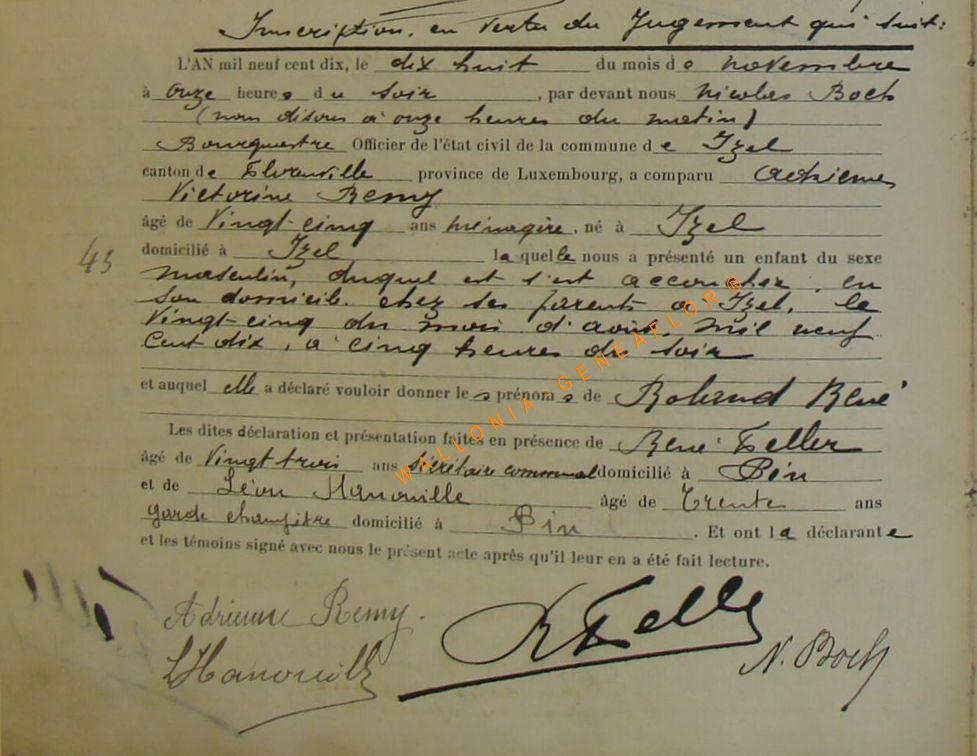 Inscription, en vertu du Jugement qui suit:
L'AN mil neuf cent dix, le dix huit du mois de novembre
à onze heures du soir, par devant nous Nicolas Boch
(nous disons à onze heures du matin)
Bourgmestre Officier de l'état civil de la commune de Izel
canton de Florenville province de Luxembourg, a comparu Adrienne
Victorine Remy
âgé de Vingt-cinq ans ménagère, né à Izel
domicilié à Izel laquelle nous a présenté un enfant du sexe
43
masculin, duquel est s'est accouchée, en
son domicile chez ses parents à Izel, le
Vingt-cinq du mois d'août, mil neuf
Cent dix, à cinq heures du soir
et auquel elle a déclaré vouloir donner les prénoms de Roland René
Les dites déclaration et présentation faites en présence de René Feller
âgé de Vingt trois ans secrétaire communal domicilié à Pin
et de Léon Hanouille âgé de Trente ans
garde champêtre domicilié à Pin. Et ont la déclarante
et les témoins signé avec nous le présent acte après qu'il leur en a été fait lecture.
Adrienne Remy.
R Feller
LHanouille
N. Boch
WALLONIA - GENEAFLOR ©